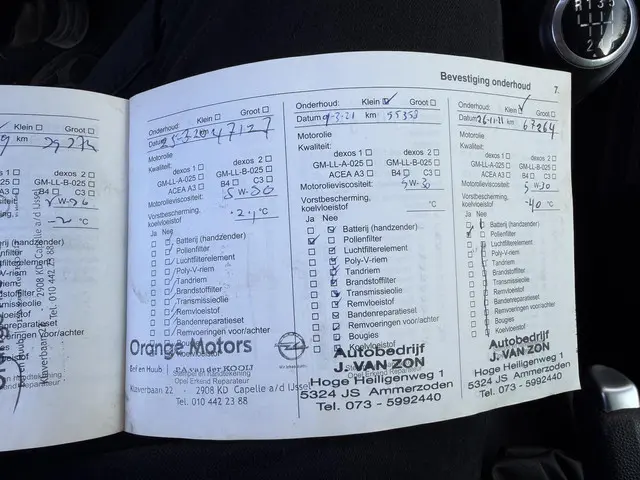 Bevestiging onderhoud 7.
km 29274
GM-LL-B-025
B4 C3
W-
-2 °C
Batterij (handzender)
Pollenfilter
Luchtfilterelement
Poly-V-riem
Tandriem
Brandstoffilter
Transmissieolie
Remvloeistof
Bandenreparatieset
Remvoeringen voor/achter
2908 KD Capelle a/d IJssel
Tel. 010 442 23 88
Onderhoud: Klein Groot
Datum km 47127
Motorolie
Kwaliteit:
dexos 1 dexos 2
GM-LL-A-025 GM-LL-B-025
ACEA A3 B4 C3
Motorolieviscositeit: 5 W-30
Vorstbescherming,
koelvloeistof °C
Ja Nee
Batterij (handzender)
Pollenfilter
Luchtfilterelement
Poly-V-riem
Tandriem
Brandstoffilter
Transmissieolie
Remvloeistof
Bandenreparatieset
Remvoeringen voor/achter
Bougies
Koelvloeistof
Orange Motors
Bef en Huub P.A van der KOOIJ
Stempel en handtekening
Opel Erkend Reparateur
Klaverbaan 22 - 2908 KD Capelle a/d IJssel
Tel. 010 442 23 88
Onderhoud: Klein Groot
Datum 9-3-21 km 55353
Motorolie
Kwaliteit:
dexos 1 dexos 2
GM-LL-A-025 GM-LL-B-025
ACEA A3 B4 C3
Motorolieviscositeit: 5 W-30
Vorstbescherming,
koelvloeistof °C
Ja Nee
Batterij (handzender)
Pollenfilter
Luchtfilterelement
Poly-V-riem
Tandriem
Brandstoffilter
Transmissieolie
Remvloeistof
Bandenreparatieset
Remvoeringen voor/achter
Bougies
Koelvloeistof
Autobedrijf
J. VAN ZON
Opel Erkend Reparateur
Hoge Heiligenweg 1
5324 JS Ammerzoden
Tel. 073 - 5992440
Onderhoud: Klein Groot
Datum 26-11-21 km 67264
Motorolie
Kwaliteit:
dexos 1 dexos 2
GM-LL-A-025 GM-LL-B-025
ACEA A3 B4 C3
Motorolieviscositeit: 5 W-30
Vorstbescherming,
koelvloeistof -40 °C
Ja Nee
Batterij (handzender)
Pollenfilter
Luchtfilterelement
Poly-V-riem
Tandriem
Brandstoffilter
Transmissieolie
Remvloeistof
Bandenreparatieset
Remvoeringen voor/achter
Bougies
Koelvloeistof
Autobedrijf
J. VAN ZON
Hoge Heiligenweg 1
5324 JS Ammerzoden
Tel. 073 - 5992440
R 1 3 5
2